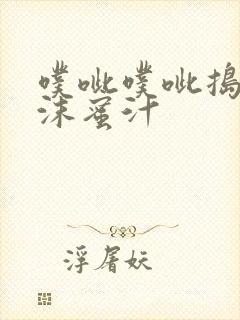 噗呲噗呲搗
沫蜜汁
浮屠妖